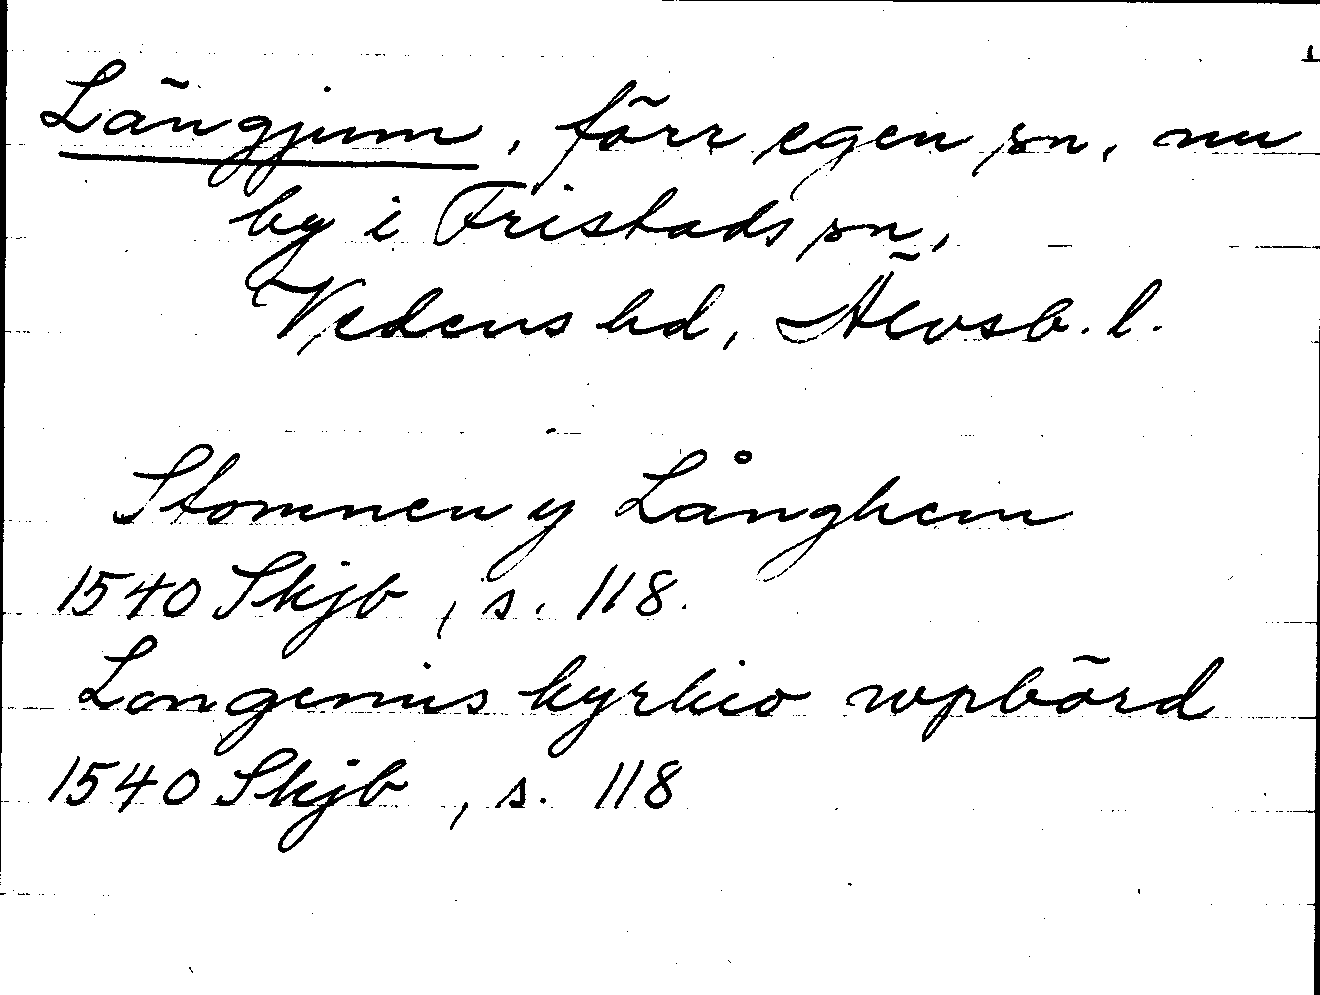 Längjum, förr egen sn, nu
by i Fristads sn,
Vedens hd, Älvsb. l.
Stomnen y Långhem
1540 Skjb, s. 118.
Longemis kyrkio wpbörd
1540 Skjb, s. 118